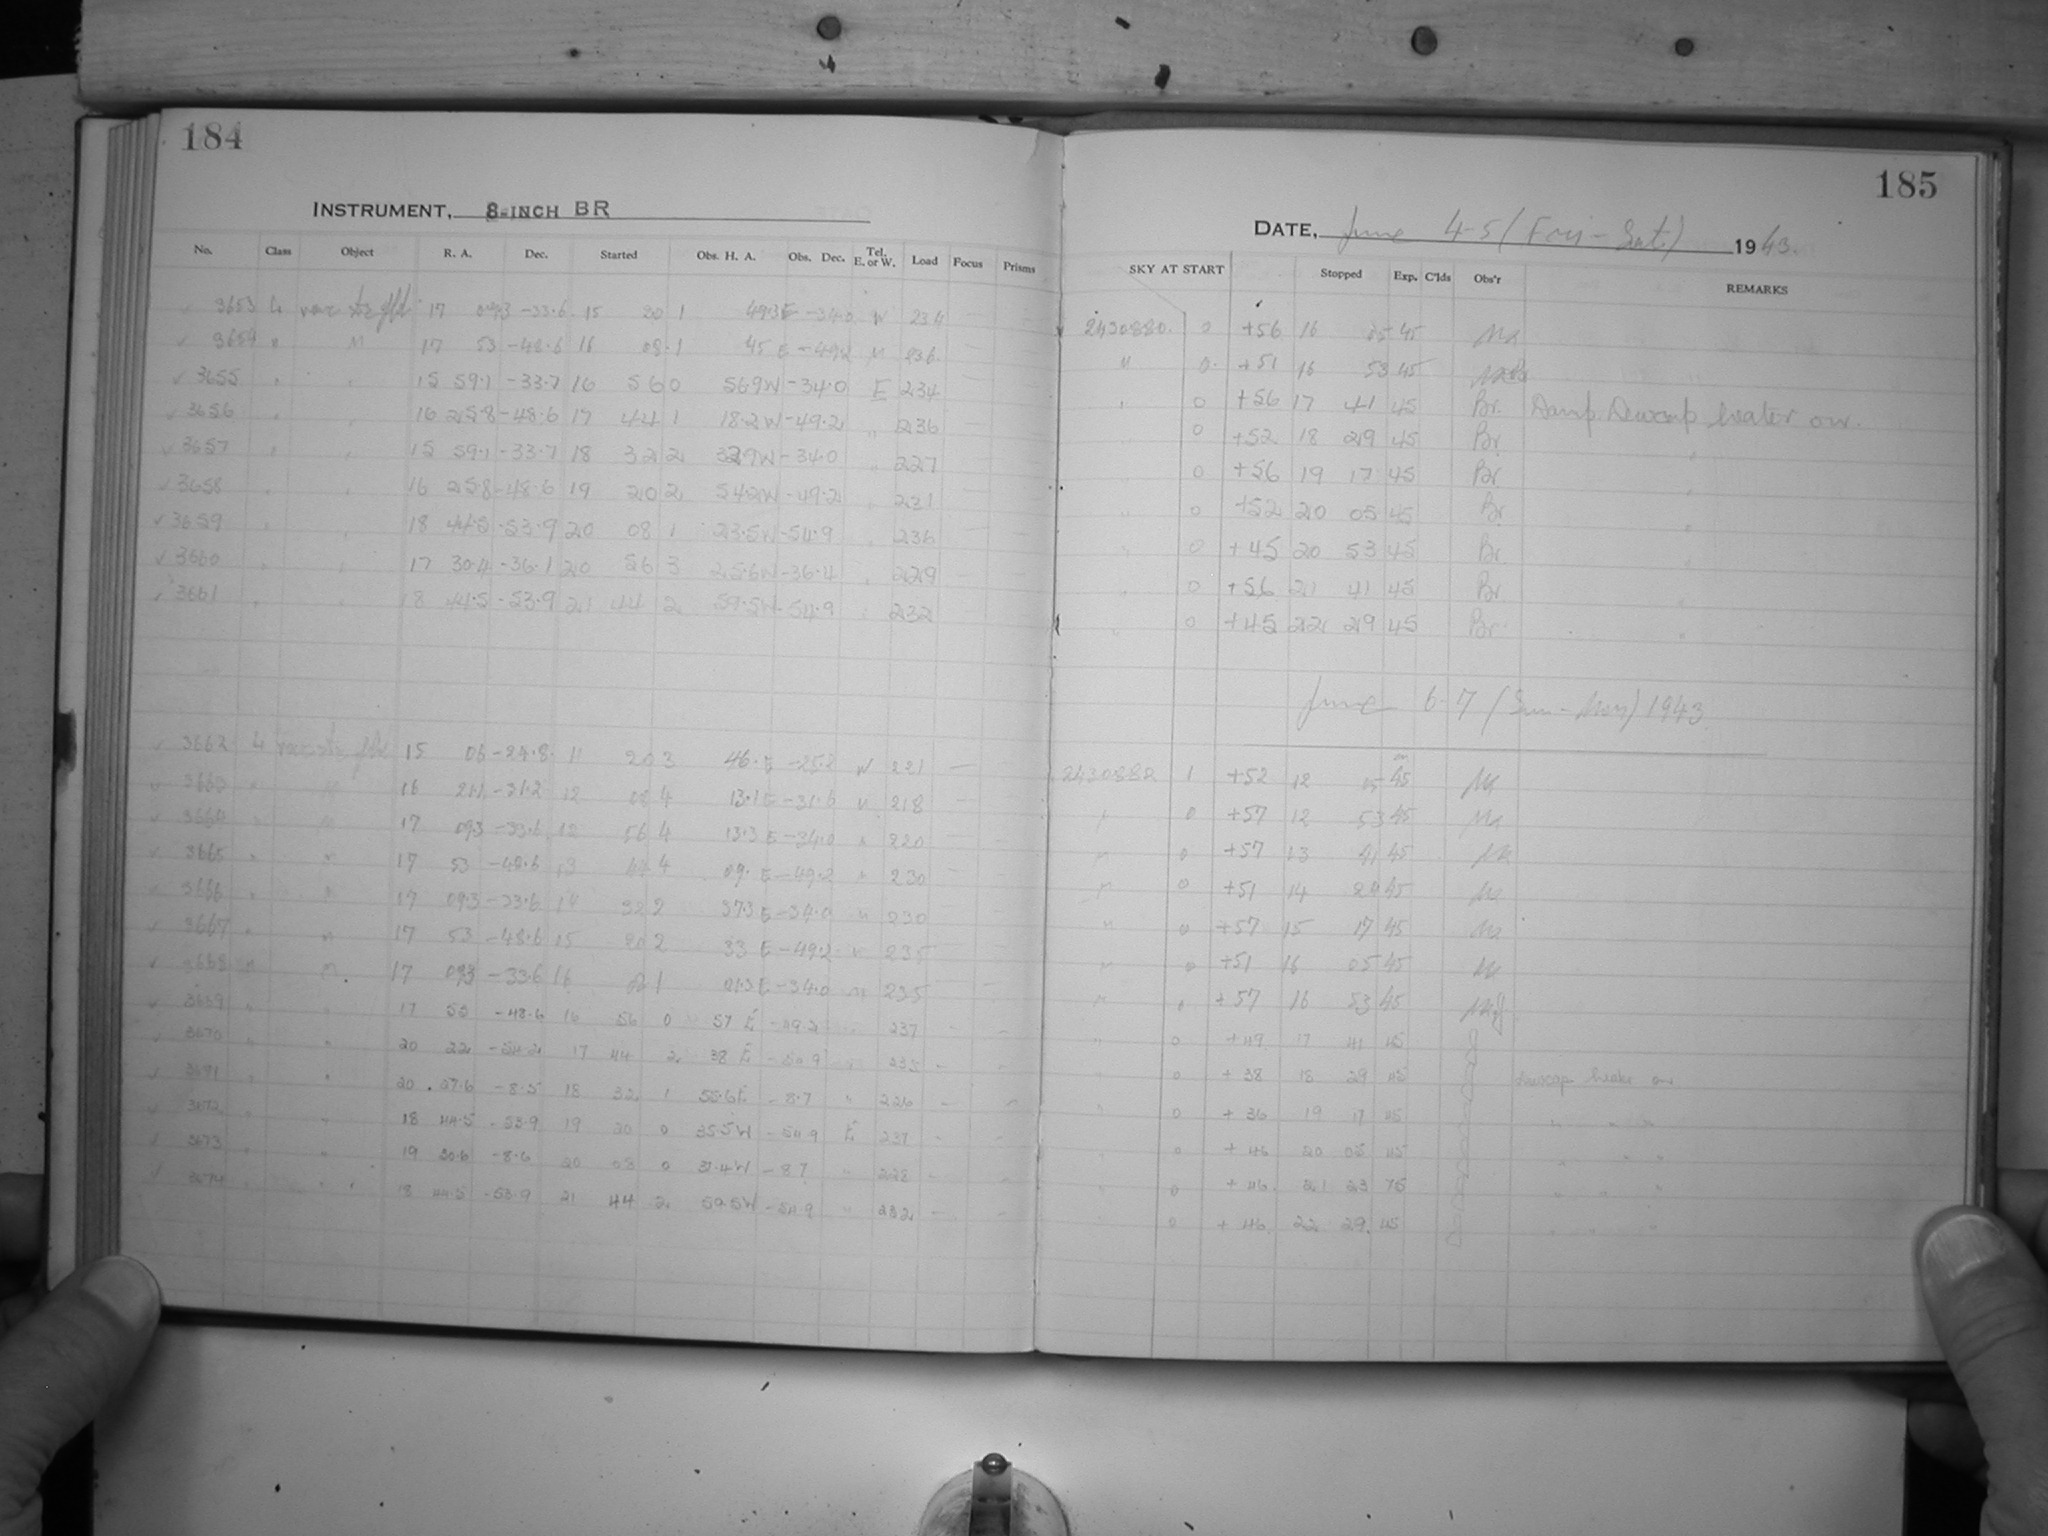 184
INSTRUMENT, 8-INCH BR
No. Class Object R. A. Dec. Started Obs. H. A. Obs. Dec. Tel. E. or W. Load Focus Prisms
3653 17 -33.6 15 20 1 49.3 E -34.0 W 234
3654 " " 17 53 -48.6 16 08 1 45 E -49.2 " 236
3655 " " 15 59.1 -33.7 16 56 0 56.9W -34.0 E 234
3656 " " 16 25.8 -48.6 17 44 1 18.2W -49.2 " 236
3657 " " 15 59.1 -33.7 18 32 2 32.9W -34.0 " 227
3658 " " 16 25.8 -48.6 19 20 2 54.2W -49.2 " 231
3659 " " 18 44.5 -53.9 20 08 1 23.5W -54.9 " 236
3660 " " 17 30.4 -36.1 20 56 3 25.6W -36.4 " 229
3661 " " 18 44.5 -53.9 21 44 2 59.5W -54.9 " 232
3662 15 06 -24.8 11 20 3 46. E -25.2 W 221
3663 " " 16 21.1 -31.2 12 08 4 13.1 E -31.6 " 218
3664 " " 17 09.3 -33.6 12 56 4 13.3 E -34.0 " 220
3665 " " 17 53 -48.6 13 44 4 09. E -49.2 " 230
3666 " " 17 09.3 -33.6 14 32 2 37.3 E -34.0 " 230
3667 " " 17 53 -48.6 15 20 2 33 E -49.2 " 235
3668 " " 17 09.3 -33.6 16 08 1 01.3 E -34.0 " 235
3669 " " 17 53 -48.6 16 56 0 57 E -49.2 " 237
3670 " " 20 22 -54.2 17 44 2 38 E -54.9 " 235
3671 " " 20 27.6 -8.5 18 32 1 55.6E -8.7 " 226
3672 " " 18 44.5 -53.9 19 20 0 35.5W -54.9 E 237
3673 " " 19 30.6 -8.6 20 08 0 37.4W -8.7 " 228
3674 " " 18 44.5 -53.9 21 44 2 59.5W -54.9 " 232
185
DATE, June 4-5 (Fri-Sat.) 1943.
SKY AT START Stopped Exp. C'lds Obs'r REMARKS
2430880. 0 +56 16 05 45
" 0. +51 16 53 45
" 0 +56 17 41 45 Br. Damp. Dewcap heater on.
" 0 +52 18 29 45 Br. "
" 0 +56 19 17 45 Br. "
" 0 +52 20 05 45 Br. "
" 0 +45 20 53 45 Br. "
" 0 +56 21 41 45 Br. "
" 0 +45 22 29 45 Br. "
June 6-7 (Sun-Mon) 1943
2430882 1 +52 12 05 45
" 0 +57 12 53 45
" 0 +57 13 41 45
" 0 +51 14 29 45
" 0 +57 15 17 45
" 0 +51 16 05 45
" 0 +57 16 53 45
" 0 +49 17 41 45
" 0 +38 18 29 45 Dewcap heater on
" 0 +36 19 17 45 " " "
" 0 +46 20 05 45 " " "
" 0 +46 21 23 75 " " "
" 0 +46 22 29 45 " " "